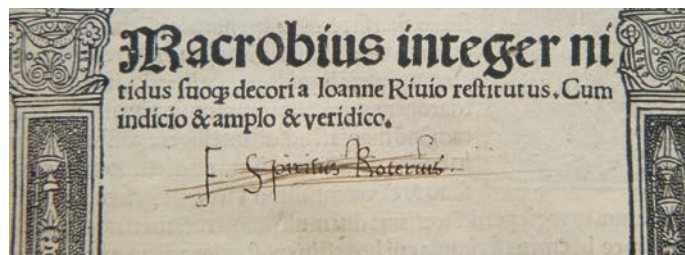 Macrobius integer ni
tidus suoq; decori a Ioanne Riuio restitutus. Cum
indicio & amplo & veridico.
F Spiritus Roterius